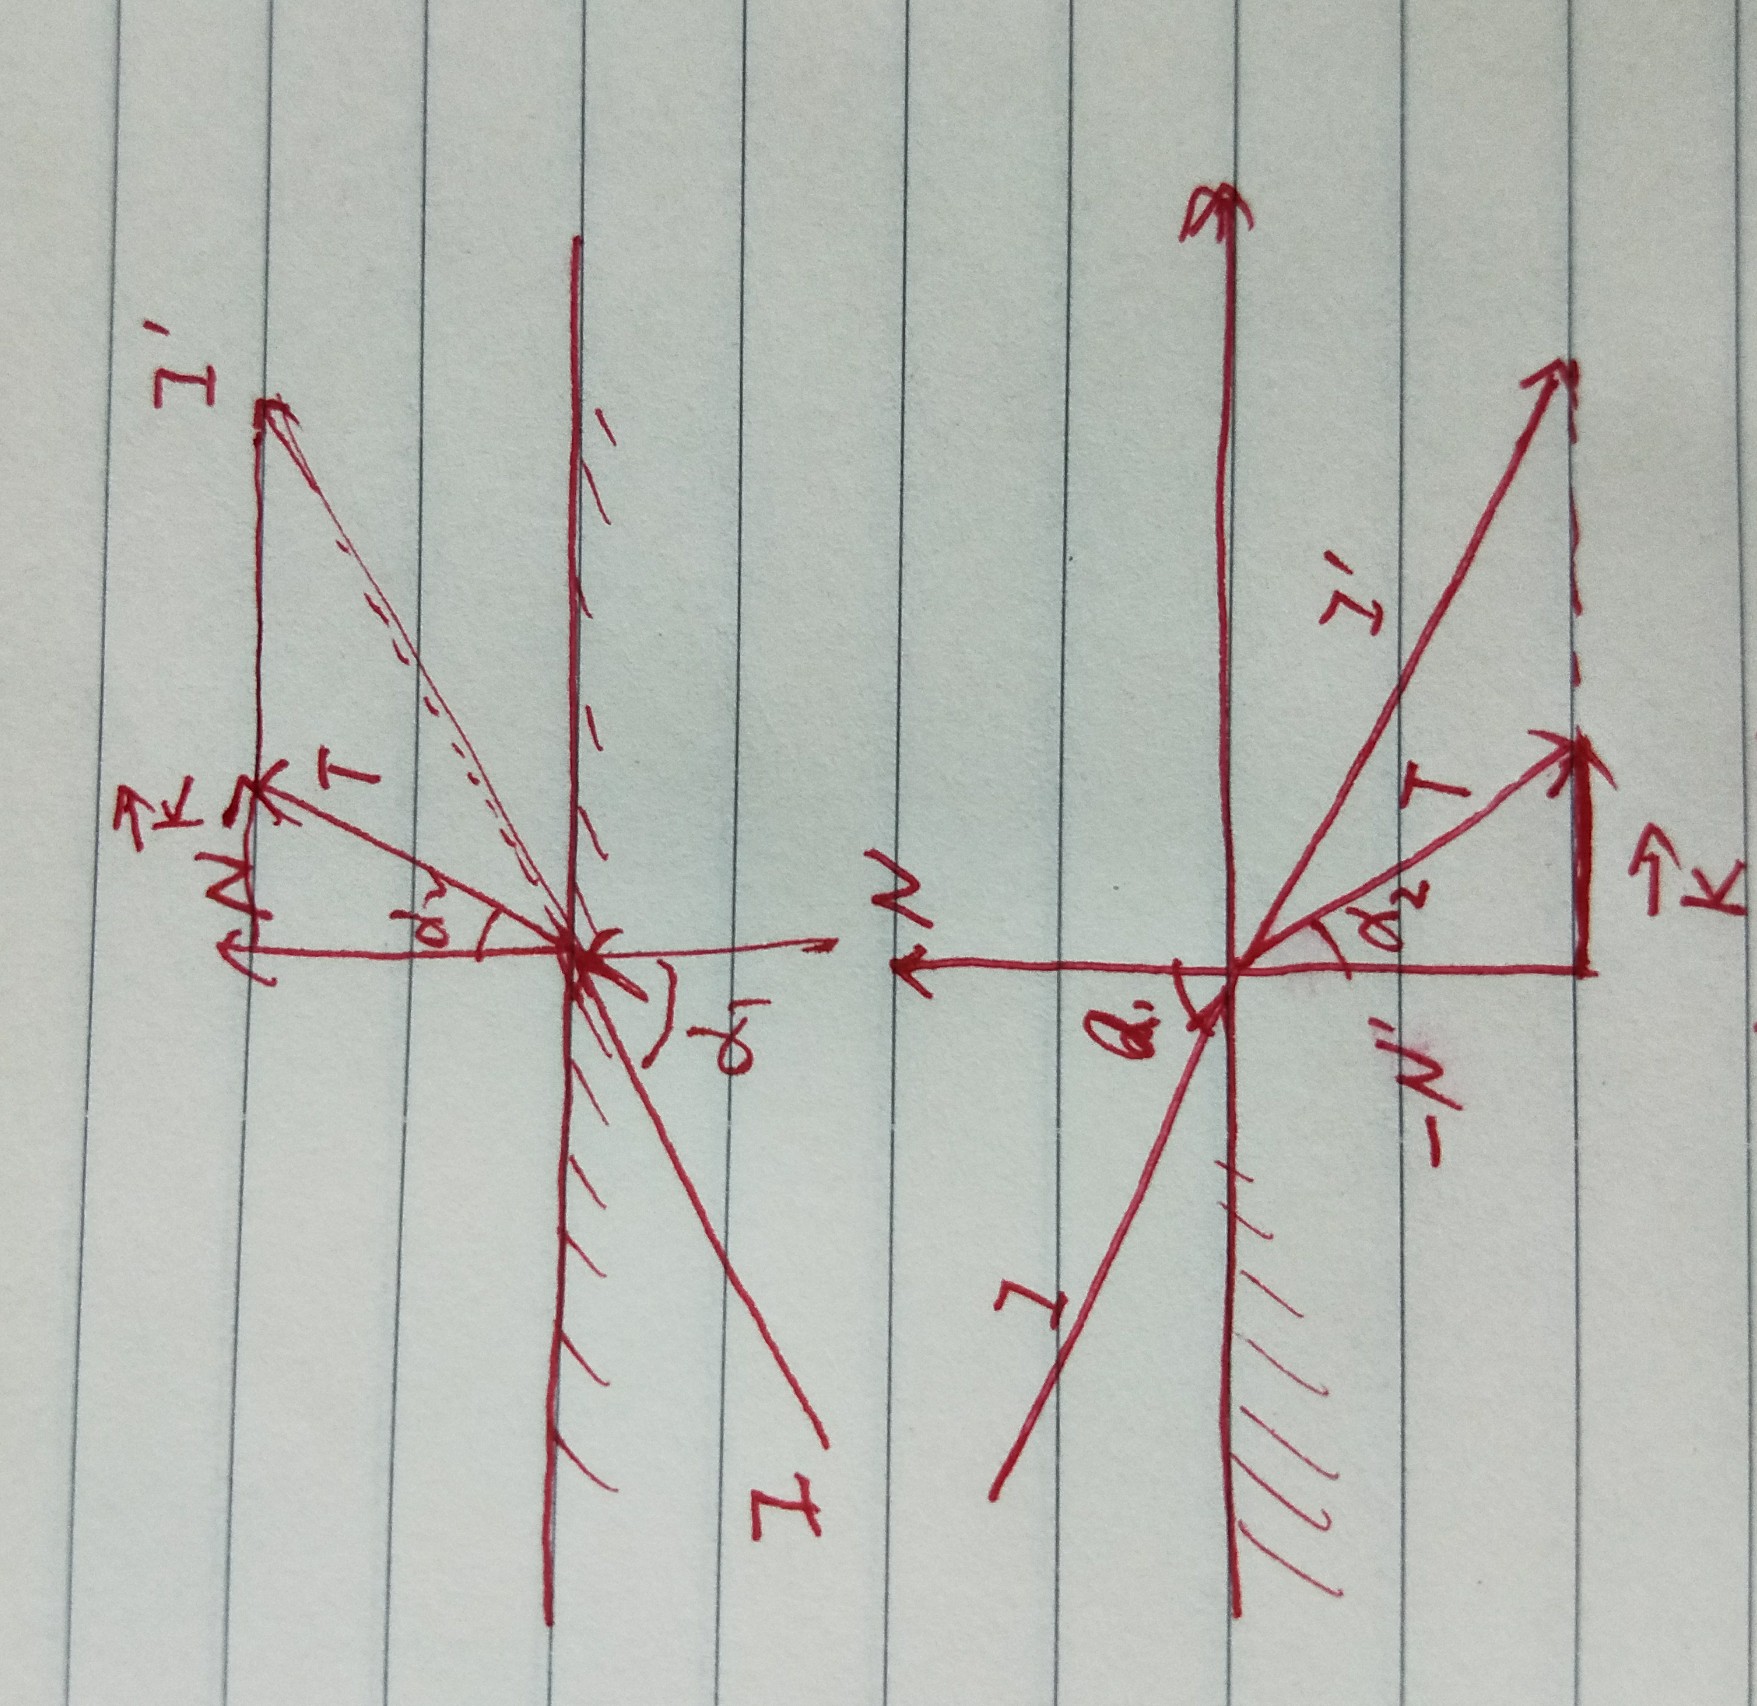 K
I'
N
T
α₂
α₁
I
N
I
α₁
I'
-N'
α₂
T
K